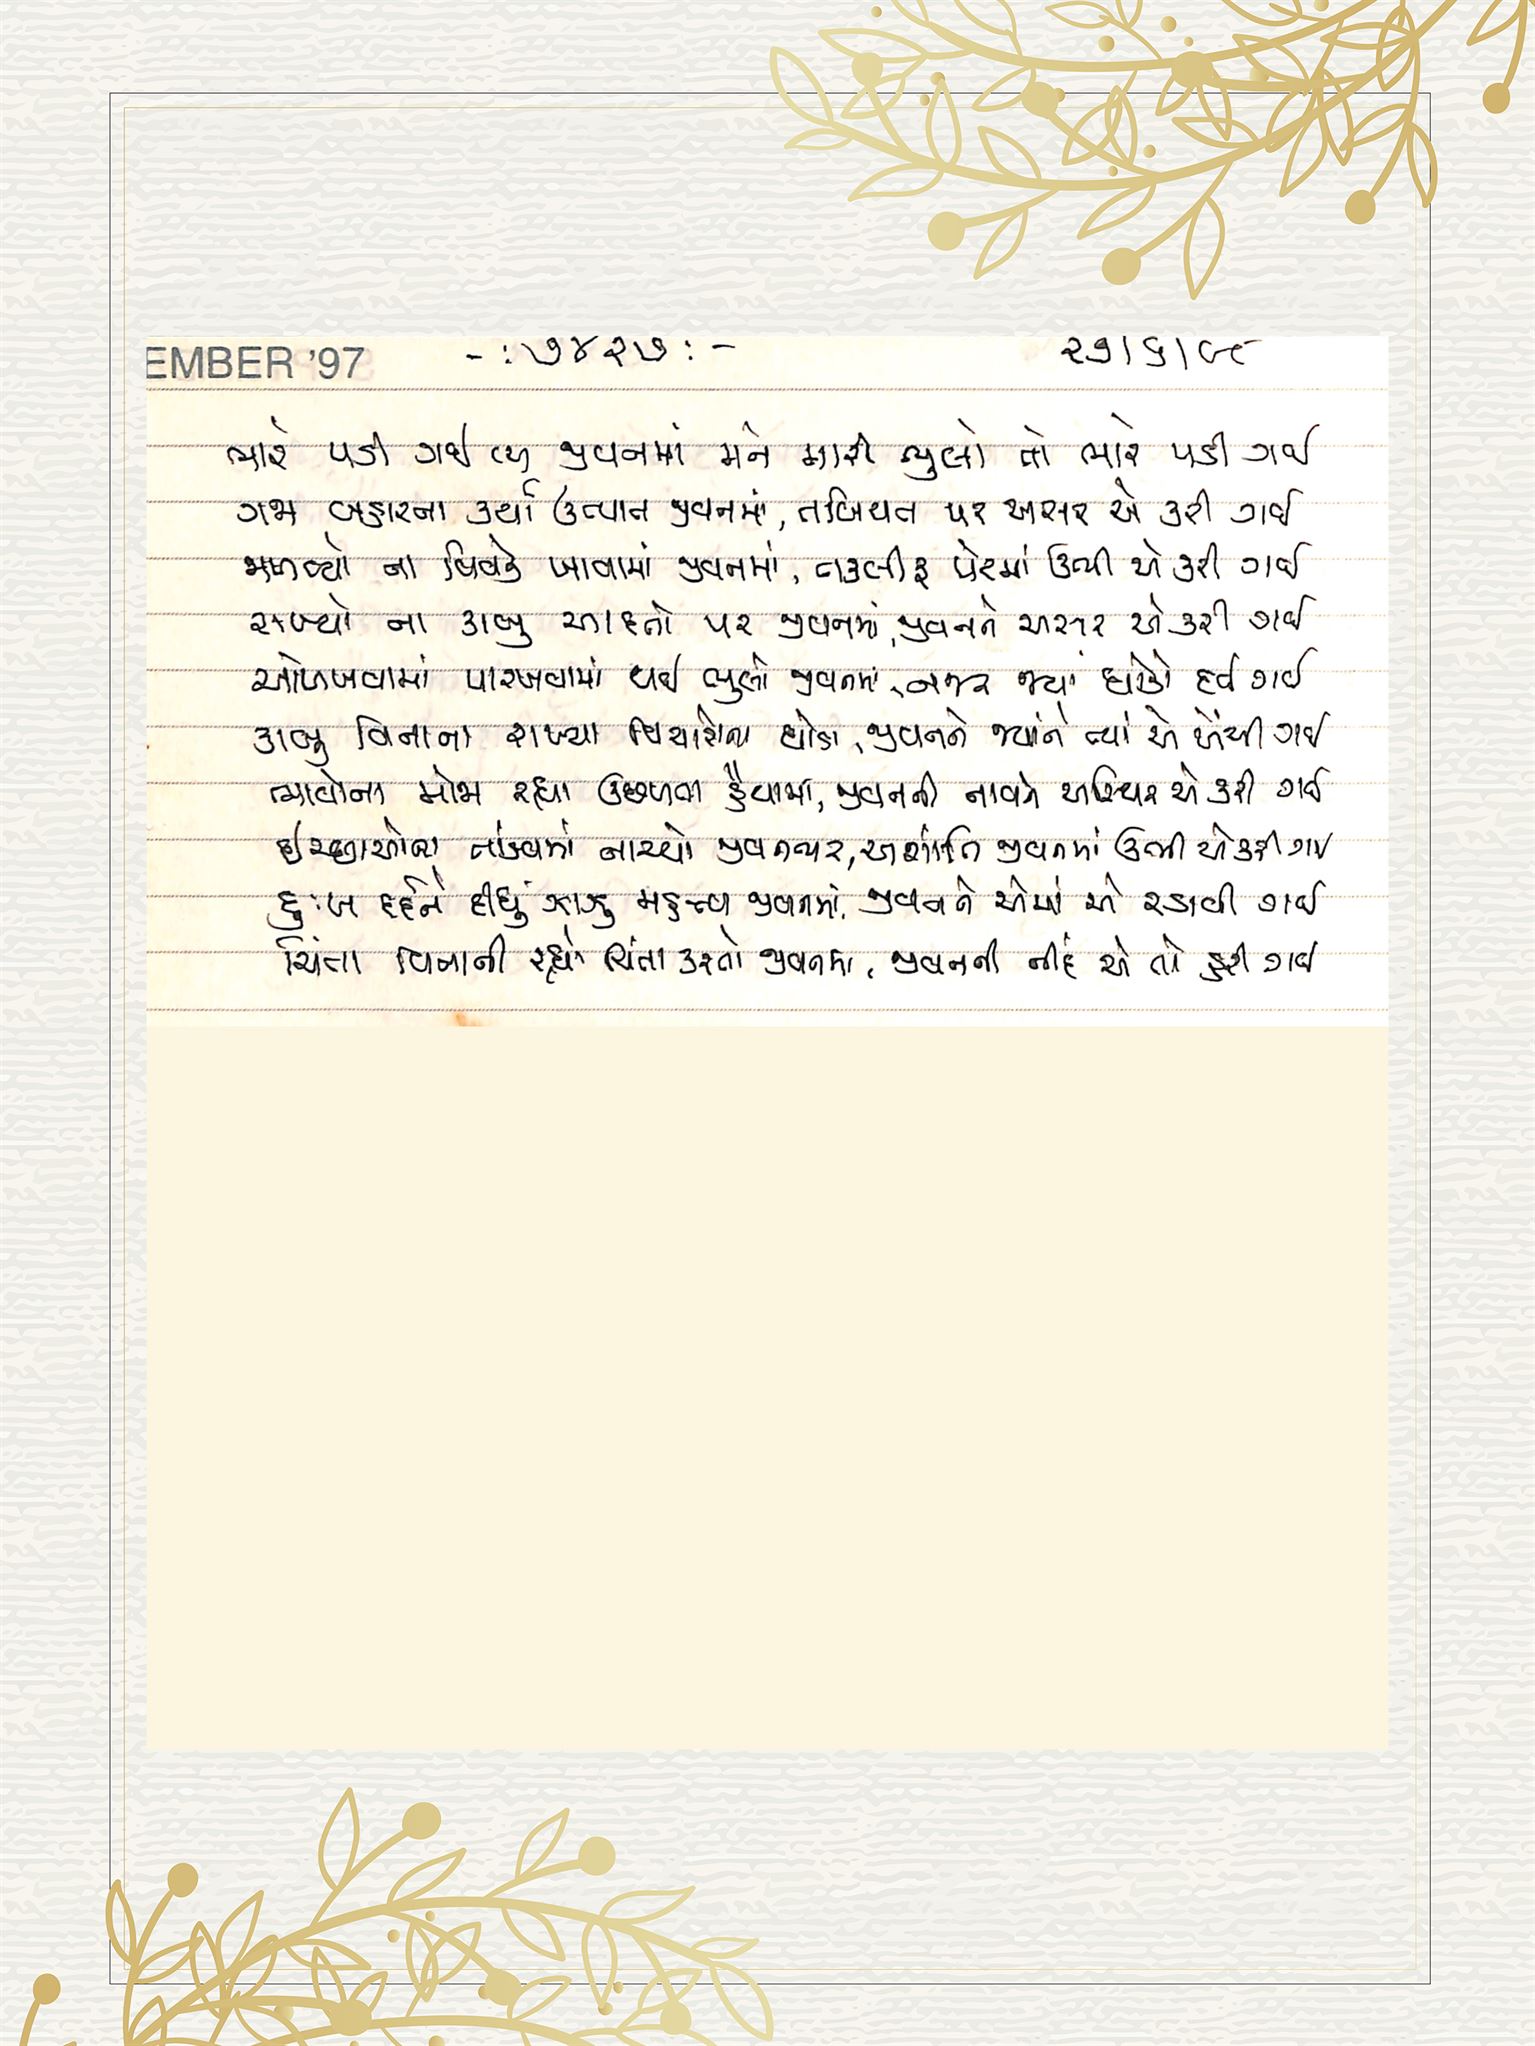 EMBER '97 -:૭૪૨૭:- ૨૭/૬/૯૮
ભારે પડી ગઈ જીવનમાં મને મારી ભુલો તો ભારે પડી ગઈ
ગજા બહારના કર્યા ઉત્પાત જીવનમાં, તબિયત પર અસર એ કરી ગઈ
જાળવ્યો ના વિવેક ખાવામાં જીવનમાં, તકલીફ પેટમાં ઉભી એ કરી ગઈ
રાખ્યો ના કાબુ આદતો પર જીવનમાં, જીવનને અસર એ કરી ગઈ
ઓળખવામાં પારખવામાં થઈ ભુલો જીવનમાં, નજર જ્યાં ધોકો દઈ ગઈ
કાબુ વિનાના રાખ્યા વિચારોના ઘોડા, જીવનને જ્યાંને ત્યાં એ ખેંચી ગઈ
ભાવોના મોજા રહ્યા ઉછળતા હૈયામાં, જીવનની નાવને અસ્થિર એ કરી ગઈ
ઈચ્છાઓના તાંડવમાં નાચ્યો જીવનભર, અશાંતિ જીવનમાં ઉભી એ કરી ગઈ
દુઃખ દર્દને દીધું ઝાઝુ મહત્ત્વ જીવનમાં, જીવનને એમાં એ રડાવી ગઈ
ચિંતા વિનાની રહ્યો ચિંતા કરતો જીવનમાં, જીવનની નીંદ એ તો હરી ગઈ